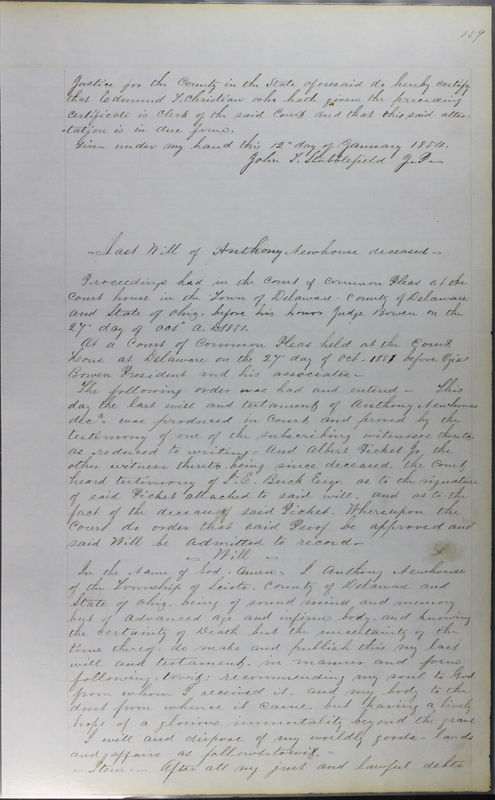 159
Justice for the County in the State aforesaid do hereby certify
that Edmund T. Christian who hath given the preceding
certificate is Clerk of the said Court and that this said attes-
-tation is in due form.
Given under my hand this 12" day of January 1854.
John T. Stubblefield J.P.
Last Will of Anthony Newhouse deceased
Proceedings had in the Court of Common Pleas at the
Court house in the Town of Delaware - County of Delaware
and State of Ohio. before his honor Judge Bowen on the
27" day of Oct A.D. 1851.
At a Court of Common Pleas held at the Court
House at Delaware on the 27" day of Oct. 1851 before Ozias
Bowen President and his associates -
The following order was had and entered - This
day the last will and testament of Anthony Newhouse
decd was produced in Court and proved by the
testimony of one of the subscribing witnesses thereto
as reduced to writing. And Albert Picket Jr the
other witness thereto being since deceased, the Court
heard testimony of Buck Esqr. as to the signature
of said Picket attached to said will, and as to the
fact of the decease of said Picket. Whereupon the
Court do order that said Proof be approved and
said Will be admitted to record -
Will
In the Name of God - Amen. I Anthony Newhouse
of the Township of Scioto. County of Delaware and
State of Ohio. being of sound mind, and memory
but of advanced age and infirm body, and knowing
the certainty of Death but the uncertainty of the
time thereof - do make and publish this my last
will and testament, in manner and form
following, towit: recommending my soul to God
from whom I received it, and my body to the
dust from whence it came but having a lively
hope of a glorious immortality beyond the grave
I will and dispose of my worldly goods - lands
and affairs as follows - towit. -
- Item - After all my just and lawful debts